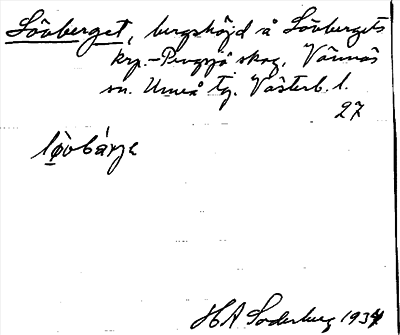 Lövberget, bergshöjd å Lövbergets
krp.-Pengsjö skog, Vännäs
sn. Umeå tg. Västerb. l.
27
lövbärje
H A Söderberg 1934